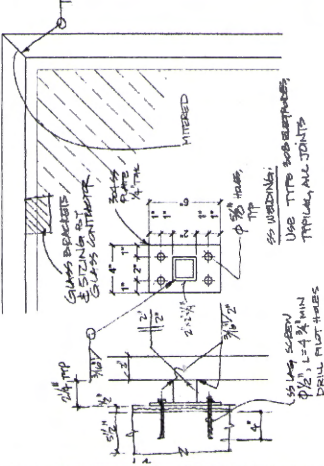 GLASS BRACKETS
& SIZING BY
GLASS CONTRACTOR
MITERED
304 SS
PLATE
1/4" THK
4"
1" 2" 1"
1"
2"
1"
6"
2"x2"x1/4"
φ 5/8" HOLES,
TYP
SS WELDING:
USE TYPE 308 ELECTRODES,
TYPICAL, ALL JOINTS
1
2 1/4" TYP
1/2"
5 1/2"
3/16"
2"
2"
3/16" 2"
4"
SS LAG SCREW
φ 1/2", L = 4 3/4" MIN
DRILL PILOT HOLES